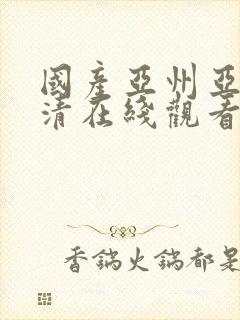 國產亞州亞
清在綫觀看
香鍋火鍋都是